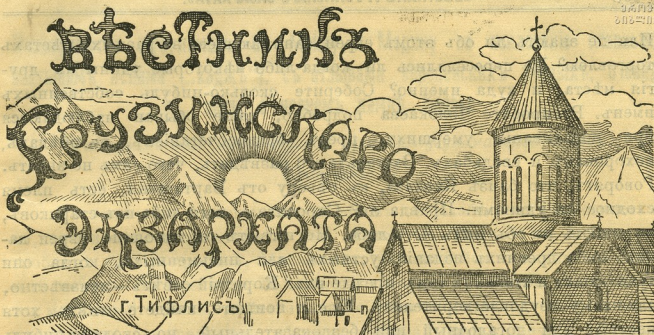 Вѣстникъ
Грузинскаго
Экзархата
г. Тифлисъ.